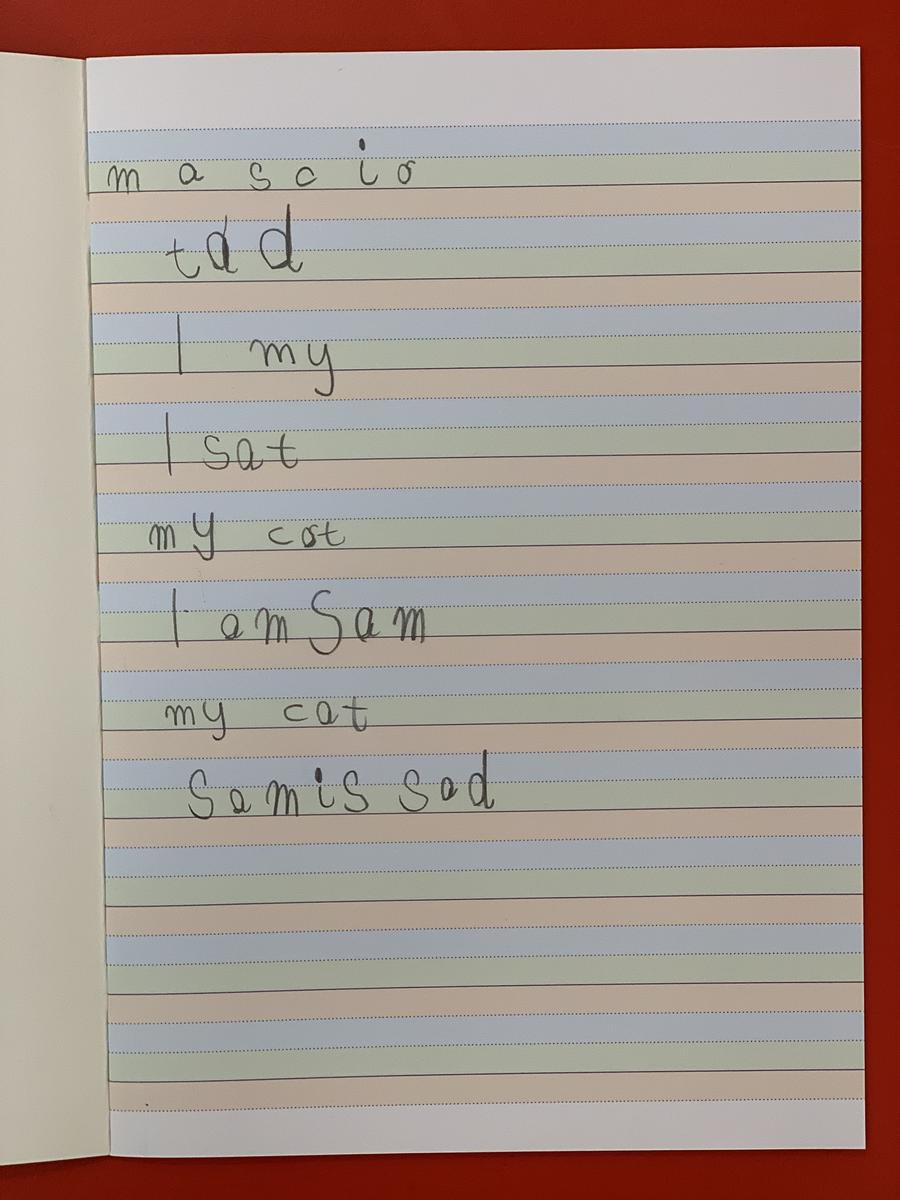 m a s c i o
t d d
I my
I sat
my cat
I am Sam
my cat
Sam is sad